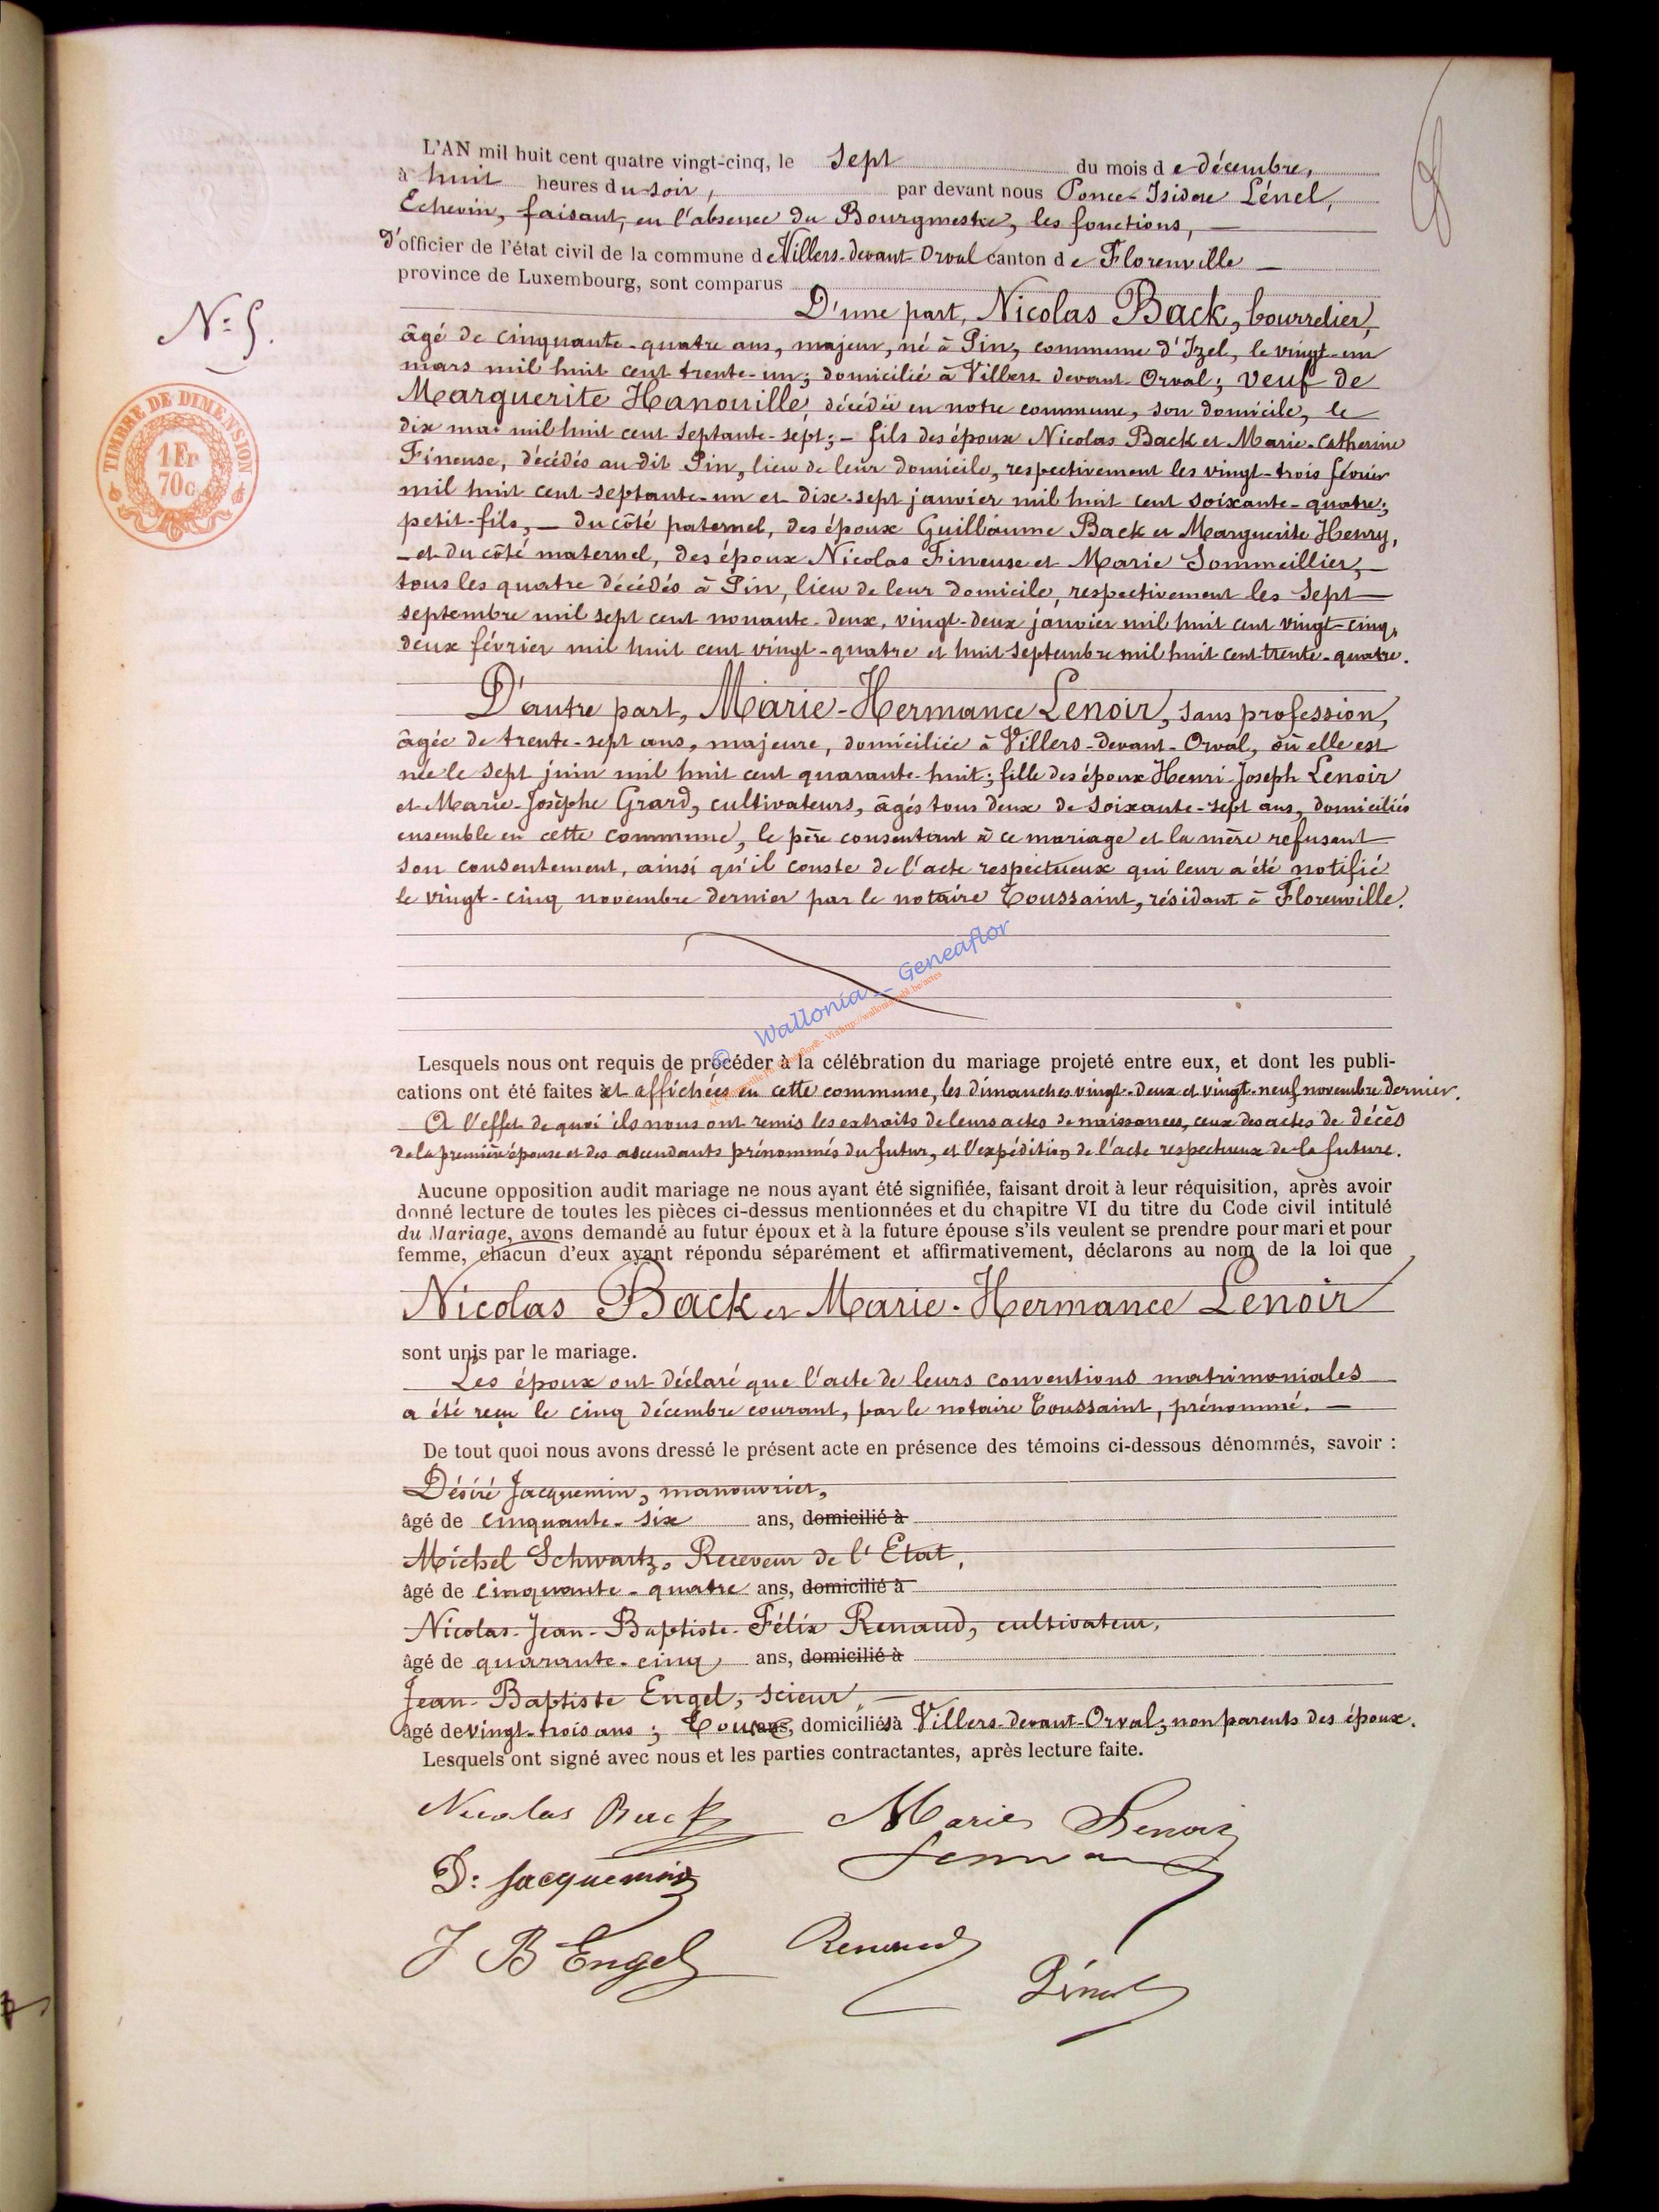 L'AN mil huit cent quatre vingt-cinq, le sept du mois de décembre,
à huit heures du soir, par devant nous Ponce-Isidore Lénel,
Echevin, faisant, en l'absence du Bourgmestre, les fonctions,
d'officier de l'état civil de la commune de Villers-devant-Orval canton de Florenville
province de Luxembourg, sont comparus
D'une part, Nicolas Back, bourrelier,
N° 5.
âgé de cinquante-quatre ans, majeur, né à Pin, commune d'Izel, le vingt-un
mars mil huit cent trente-un; domicilié à Villers-devant-Orval; veuf de
Marguerite Hanouille, décédée en notre commune, son domicile, le
dix mai mil huit cent septante-sept; – fils des époux Nicolas Back et Marie-Catherine
TIMBRE DE DIMENSION
1 Fr
70c
Fineuse, décédés au dit Pin, lieu de leur domicile, respectivement les vingt-trois février
mil huit cent septante-un et dix-sept janvier mil huit cent soixante-quatre;
petit-fils, – du côté paternel, des époux Guillaume Back et Marguerite Henry,
– et du côté maternel, des époux Nicolas Fineuse et Marie Sommeillier, –
tous les quatre décédés à Pin, lieu de leur domicile, respectivement les sept
septembre mil sept cent nonante-deux, vingt-deux janvier mil huit cent vingt-cinq,
deux février mil huit cent vingt-quatre et huit septembre mil huit cent trente-quatre.
D'autre part, Marie-Hermance Lenoir, sans profession,
âgée de trente-sept ans, majeure, domiciliée à Villers-devant-Orval, où elle est
née le sept juin mil huit cent quarante-huit; fille des époux Henri-Joseph Lenoir
et Marie-Josèphe Grard, cultivateurs, âgés tous deux de soixante-sept ans, domiciliés
ensemble en cette commune, le père consentant à ce mariage et la mère refusant
son consentement, ainsi qu'il conste de l'acte respectueux qui leur a été notifié
le vingt-cinq novembre dernier par le notaire Toussaint, résidant à Florenville.
© Wallonia _ Geneaflor
Lesquels nous ont requis de procéder à la célébration du mariage projeté entre eux, et dont les publi-
cations ont été faites et affichées en cette commune, les dimanches vingt-deux et vingt-neuf novembre dernier.
A l'effet de quoi ils nous ont remis les extraits de leurs actes de naissances, ceux des actes de décès
de la première épouse et des ascendants prénommés du futur, et l'expédition de l'acte respectueux de la future.
Aucune opposition audit mariage ne nous ayant été signifiée, faisant droit à leur réquisition, après avoir
donné lecture de toutes les pièces ci-dessus mentionnées et du chapitre VI du titre du Code civil intitulé
du Mariage, avons demandé au futur époux et à la future épouse s'ils veulent se prendre pour mari et pour
femme, chacun d'eux ayant répondu séparément et affirmativement, déclarons au nom de la loi que
Nicolas Back et Marie-Hermance Lenoir
sont unis par le mariage.
Les époux ont déclaré que l'acte de leurs conventions matrimoniales
a été reçu le cinq décembre courant, par le notaire Toussaint, prénommé. –
De tout quoi nous avons dressé le présent acte en présence des témoins ci-dessous dénommés, savoir :
Désiré Jacquemin, manouvrier,
âgé de cinquante-six ans, domicilié à
Michel Schwartz, Receveur de l'Etat,
âgé de cinquante-quatre ans, domicilié à
Nicolas-Jean-Baptiste-Félix Renaud, cultivateur,
âgé de quarante-cinq ans, domicilié à
Jean-Baptiste Engel, scieur, –
âgé de vingt-trois ans; Tous ans, domiciliés à Villers-devant-Orval; non parents des époux.
Lesquels ont signé avec nous et les parties contractantes, après lecture faite.
Nicolas Back Marie Lenoir
D: Jacquemin
J B Engel Renaud
Lénel